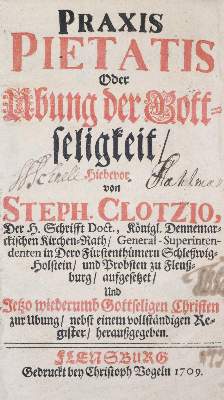 PRAXIS
PIETATIS
Oder
Ubung der Gott-
seligkeit/
Hiebevor
von
STEPH. CLOTZIO,
Der H. Schrifft Doct., Königl. Dennemar-
ckischen Kirchen-Rath/ General-Superinten-
denten in Dero Fürstenthümern Schleßwig-
Holstein/ und Probsten zu Flenß-
burg/ aufgesetzet/
Und
Jetzo wiederumb Gottseligen Christen
zur Ubung/ nebst einem vollständigen Re-
gister/ heraußgegeben.
FLENSBURG
Gedruckt bey Christoph Vogeln 1709.